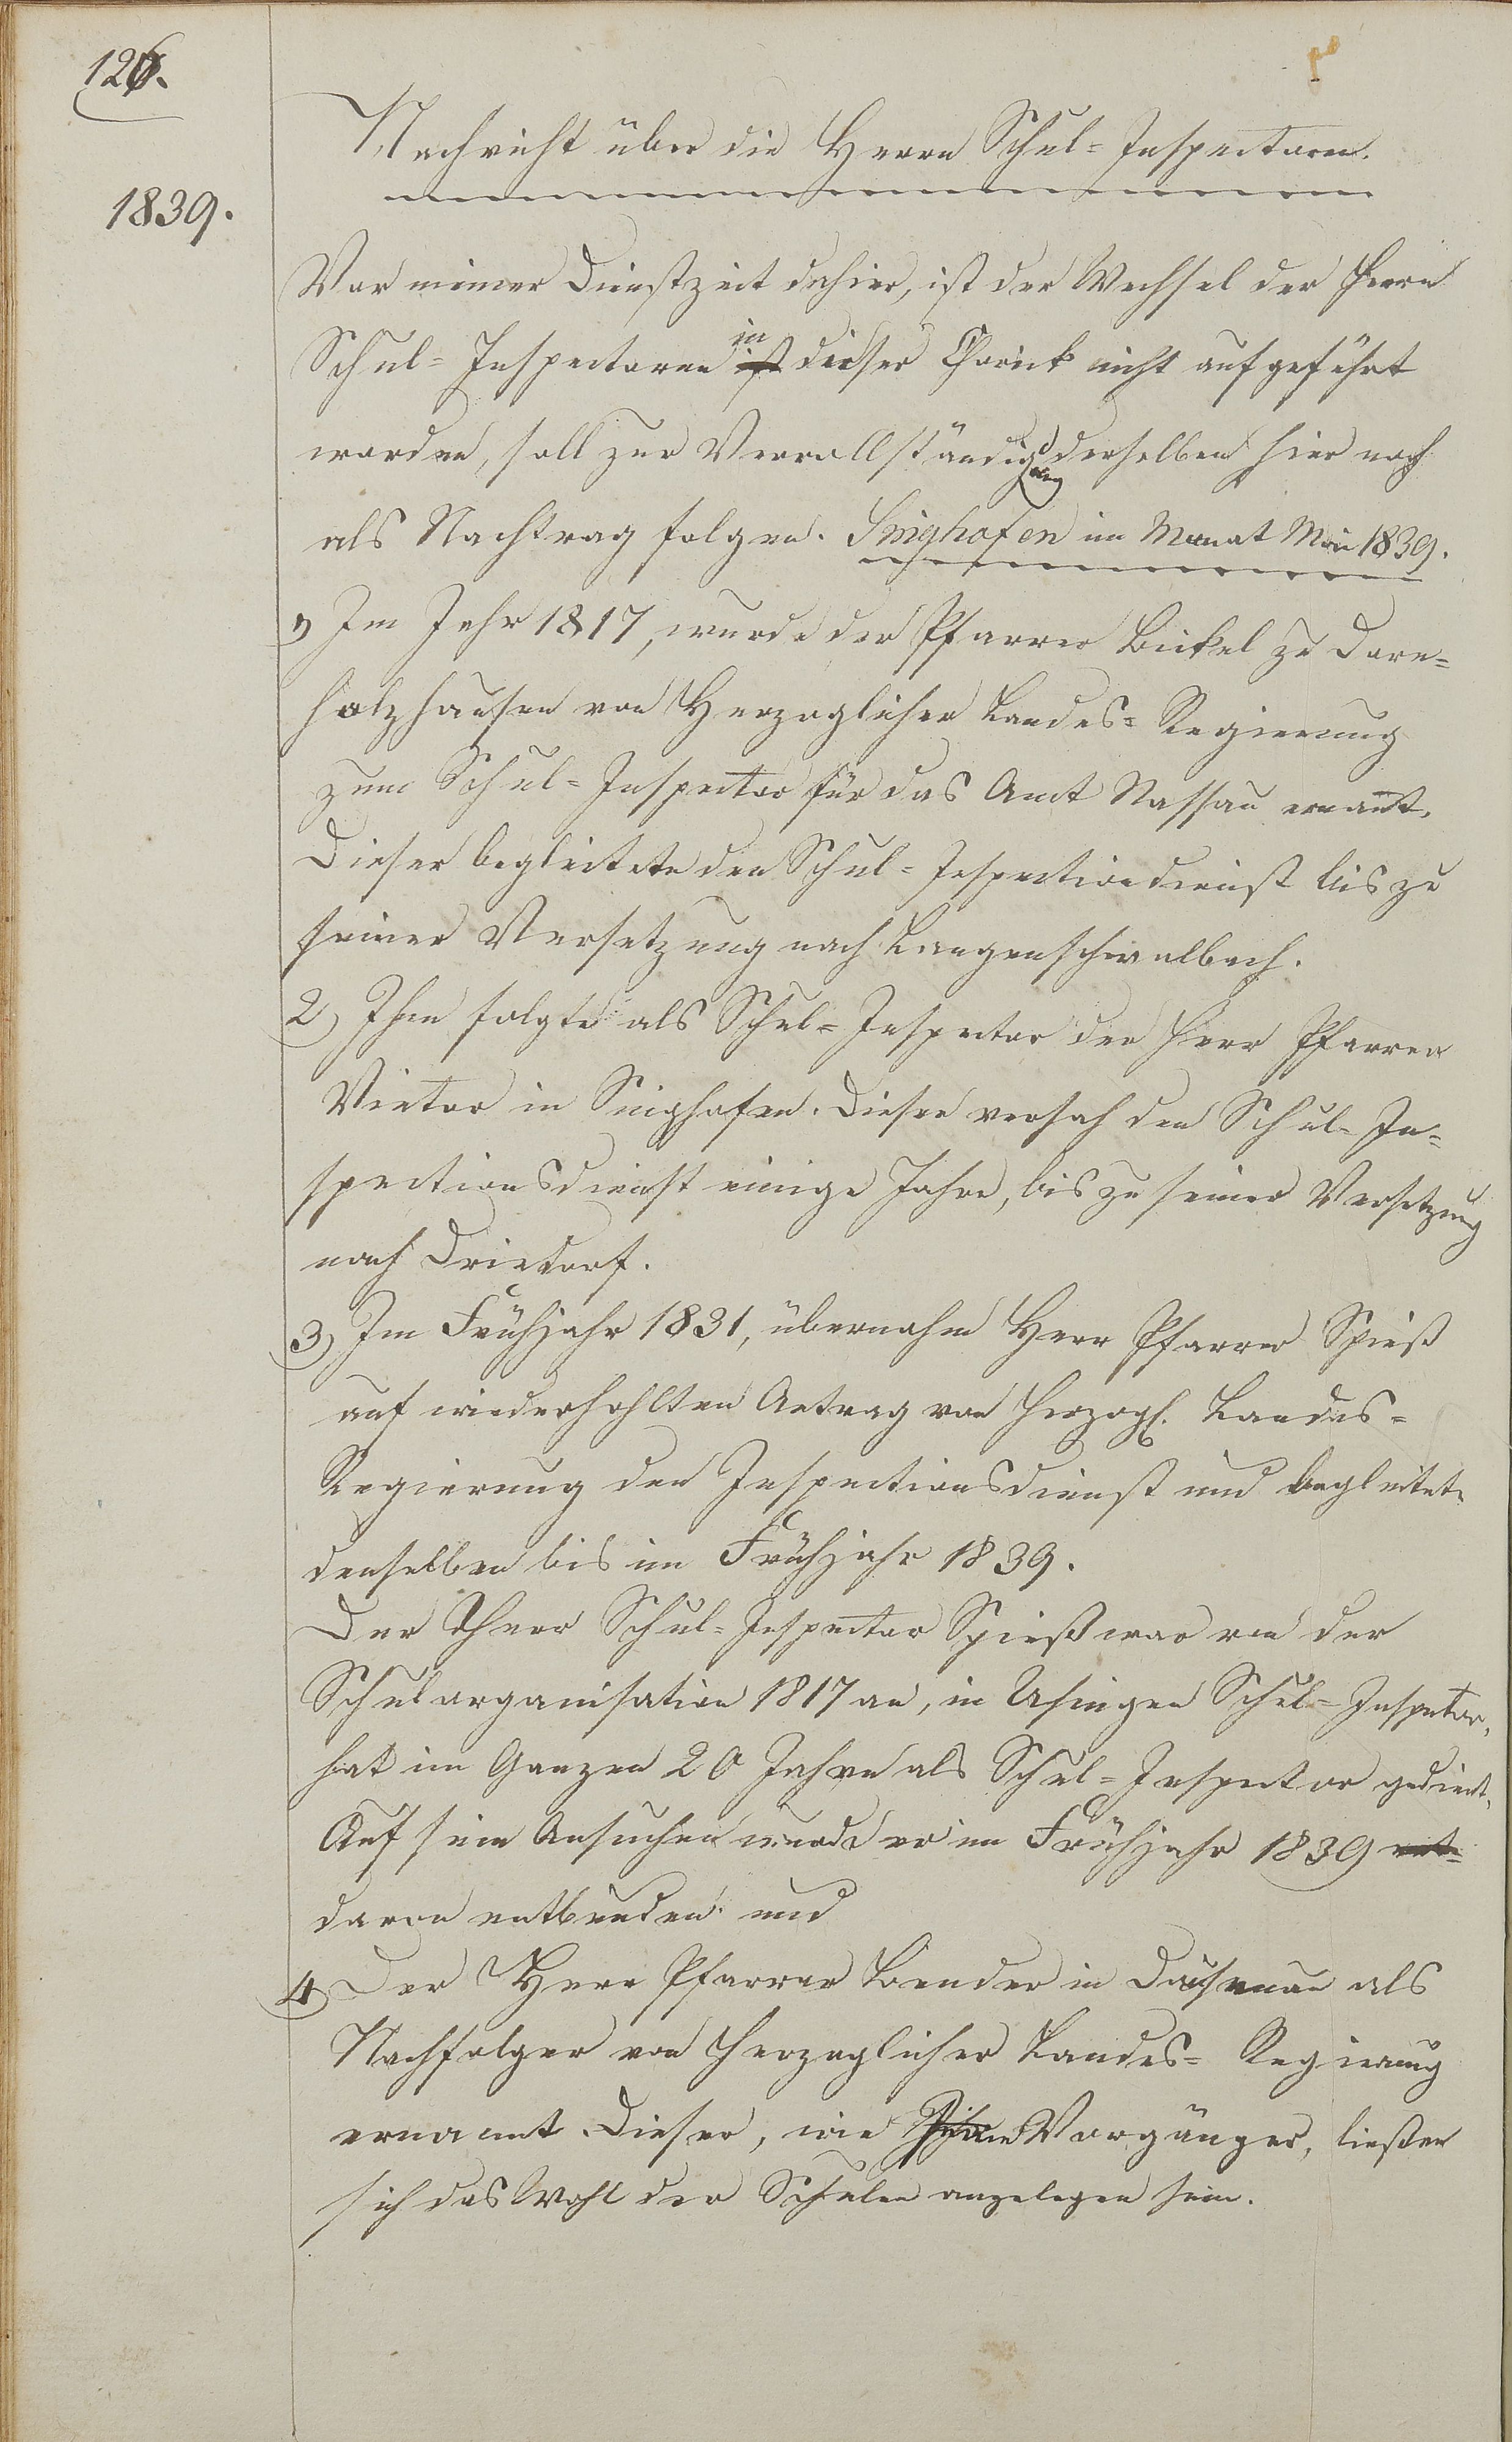 126.
1839.
Nachricht über die Herrn Schul-Inspectoren.
Vor meiner Dienstzeit dahier, ist der Wechsel der Herrn
Schul-Inspectoren in dieser Chronick nicht aufgeführt
worden, soll zur Vervollständigung derselben hier noch
als Nachtrag folgen. Singhofen im Monat Mai 1839.
1) Im Jahr 1817, wurde der Pfarrer Bickel zu Dorn-
holzhausen von Herzoglicher Landes-Regierung
zum Schul-Inspector für das Amt Nassau ernant.
Dieser begleitete den Schul-Inspectiondienst bis zu
seiner Versetzung nach Langenschwalbach.
2) Ihm folgte als Schul-Inspector der Herr Pfarrer
Vietor in Singhofen. Dieser versah den Schul-In-
spectionsdienst einige Jahre, bis zu seiner Versetzung
nach Driedorf.
3) Im Frühjahr 1831, übernahm Herr Pfarrer Spieß
auf wiederhohlten Antrag von Herzogl. Landes-
Regierung den Inspectionsdienst und begleitete
denselben bis im Frühjahr 1839.
Der Herr Schul-Inspector Spieß war von der
Schulorganisation 1817 an, in Usingen Schul-Inspector,
hat im Ganzen 20 Jahre als Schul-Inspector gedient.
Auf sein Ansuchen wurde er im Frühjahr 1839 ent-
davon entbunden und
4) Der Herr Pfarrer Bender in Dausenau als
Nachfolger von Herzoglicher Landes-Regierung
ernannt. Dieser, wie seine Vorgänger, ließen
sich das Wohl der Schulen angelegen sein.